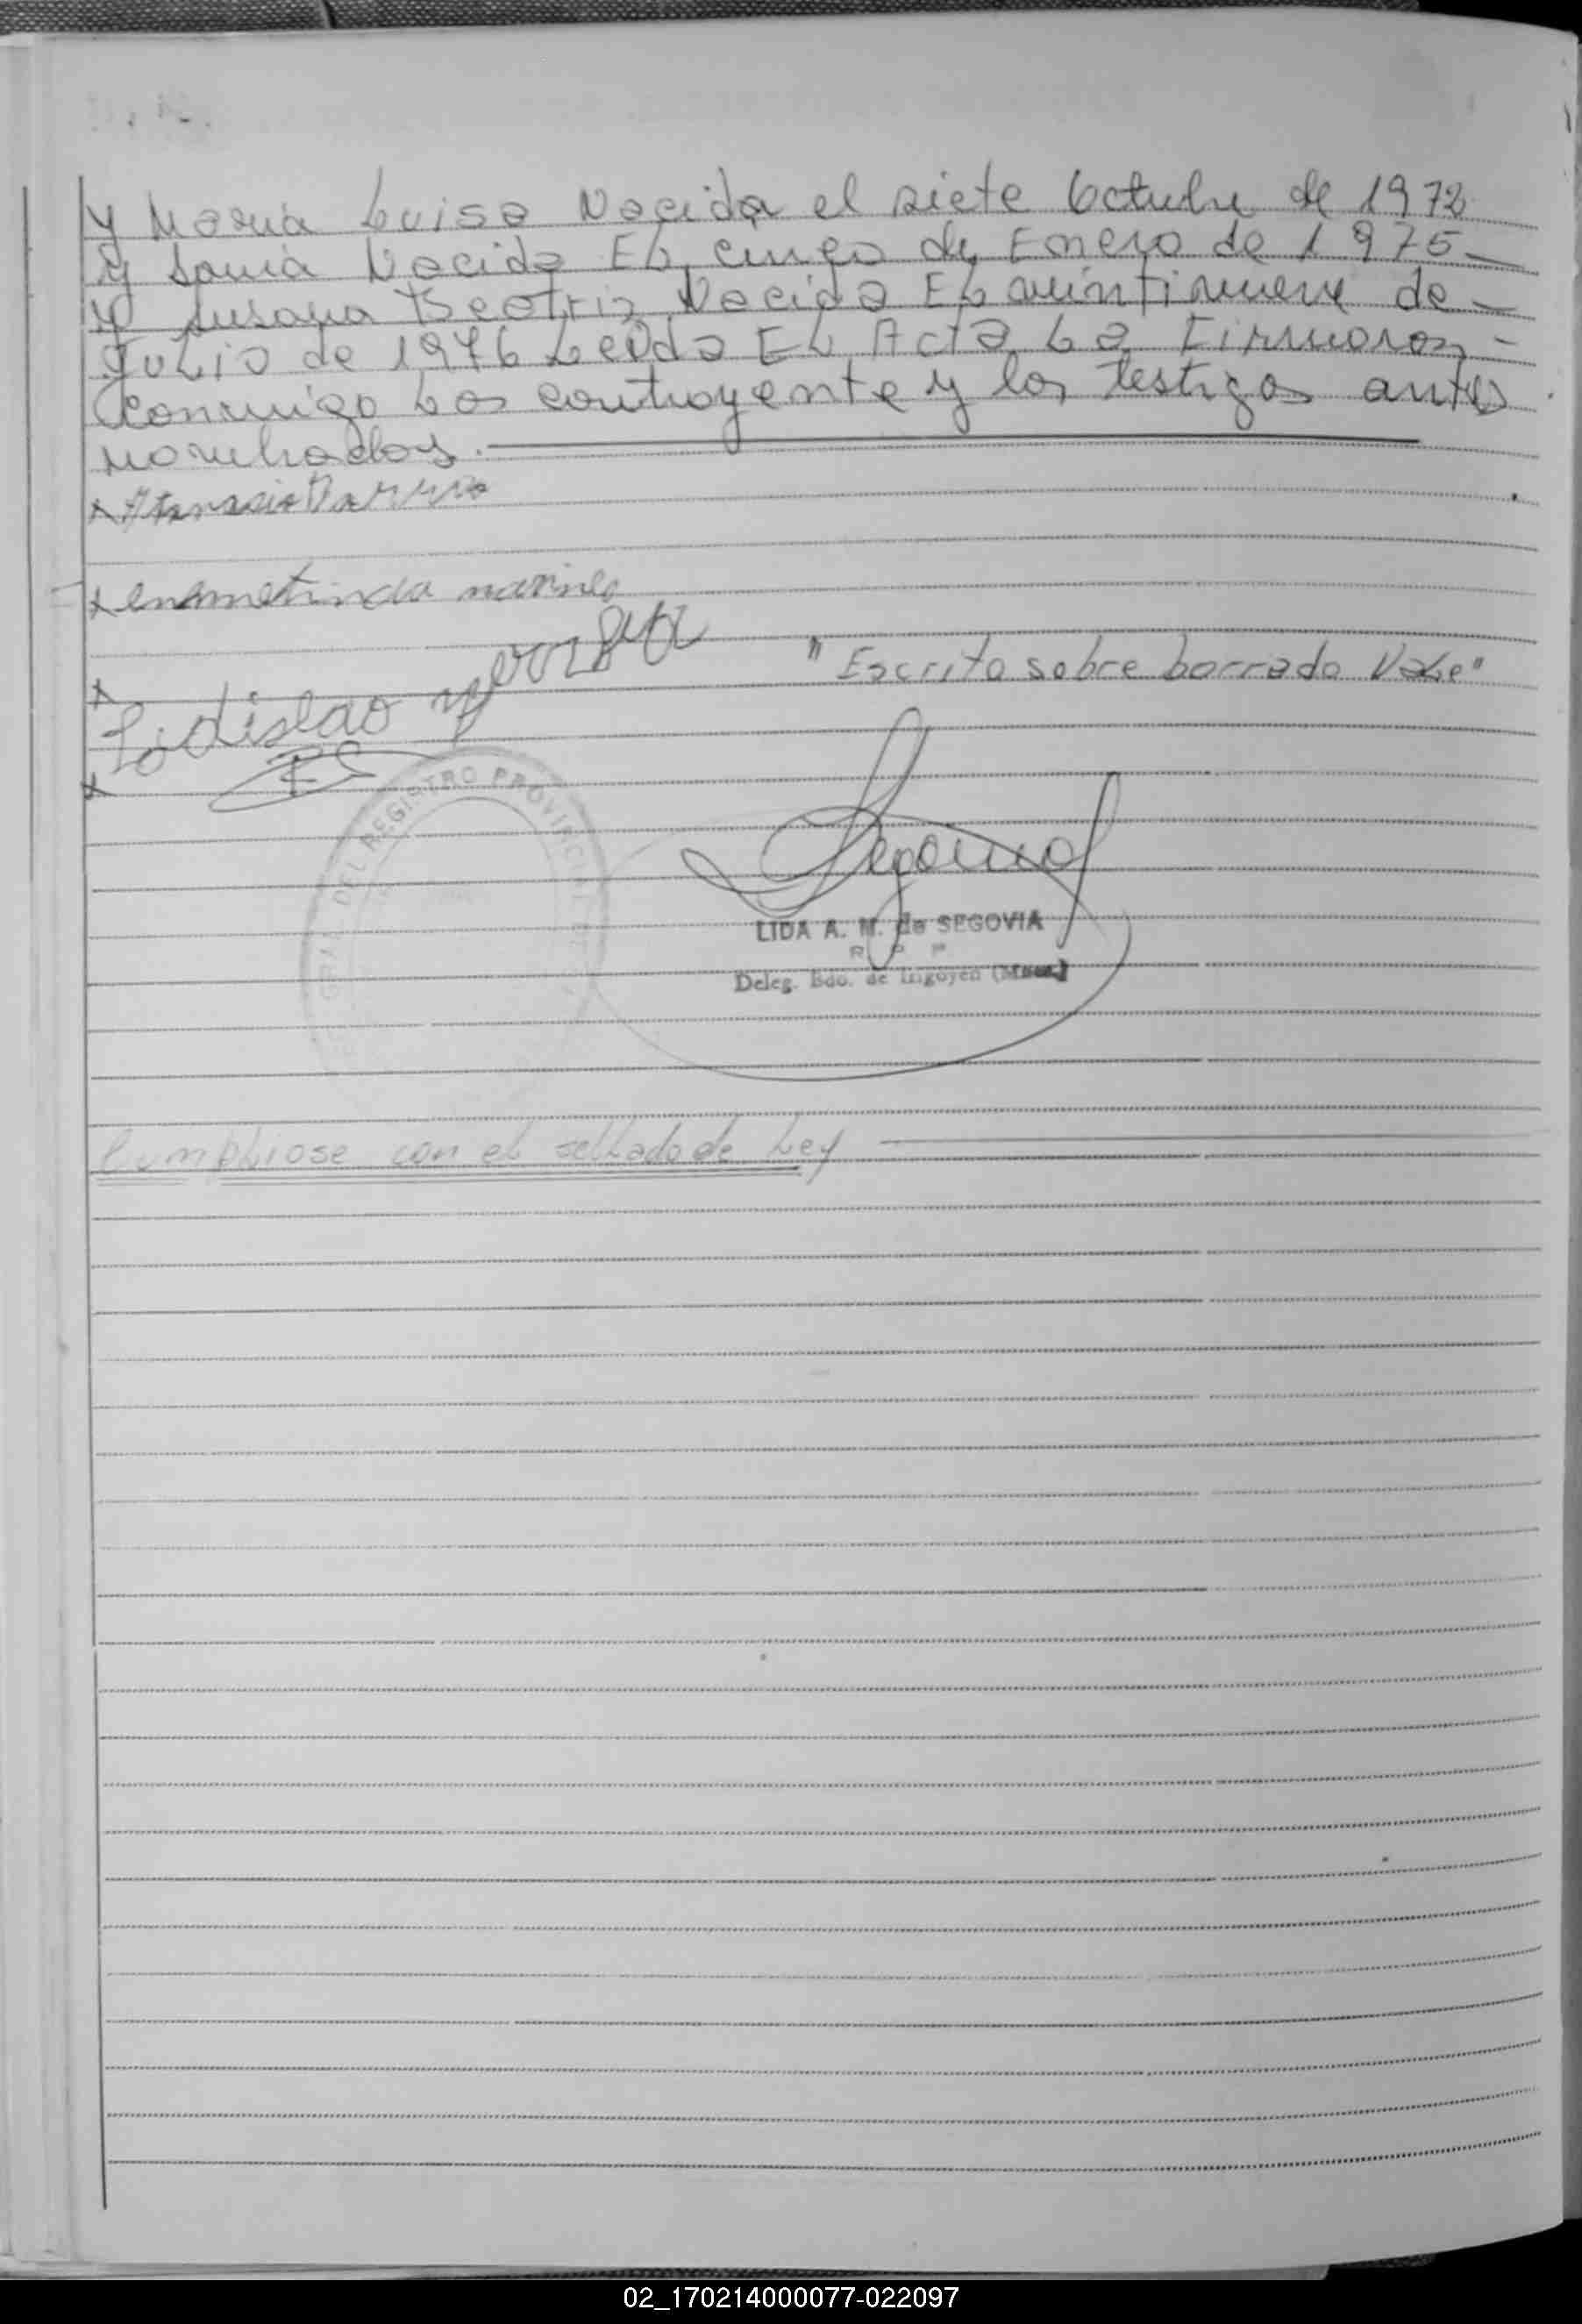 y Maria Luisa Nacida el siete Octubre de 1972
y Sonia Nacida EL cinco de Enero de 1975 —
y Susana Beatriz Nacida EL veintinueve de —
Julio de 1976 Leida EL Acta La Firmaron —
conmigo Los contrayente y los testigos antes
nombrados.
x Atanasio
x
x Ladislao
"Escrito sobre borrado Vale"
x
DEL REGISTRO PROVINCIAL
Segovia
LIDA A. M. de SEGOVIA
R P P
Deleg. Bdo. de Irigoyen (Mnes.)
Cumpliose con el sellado de Ley
02_170214000077-022097